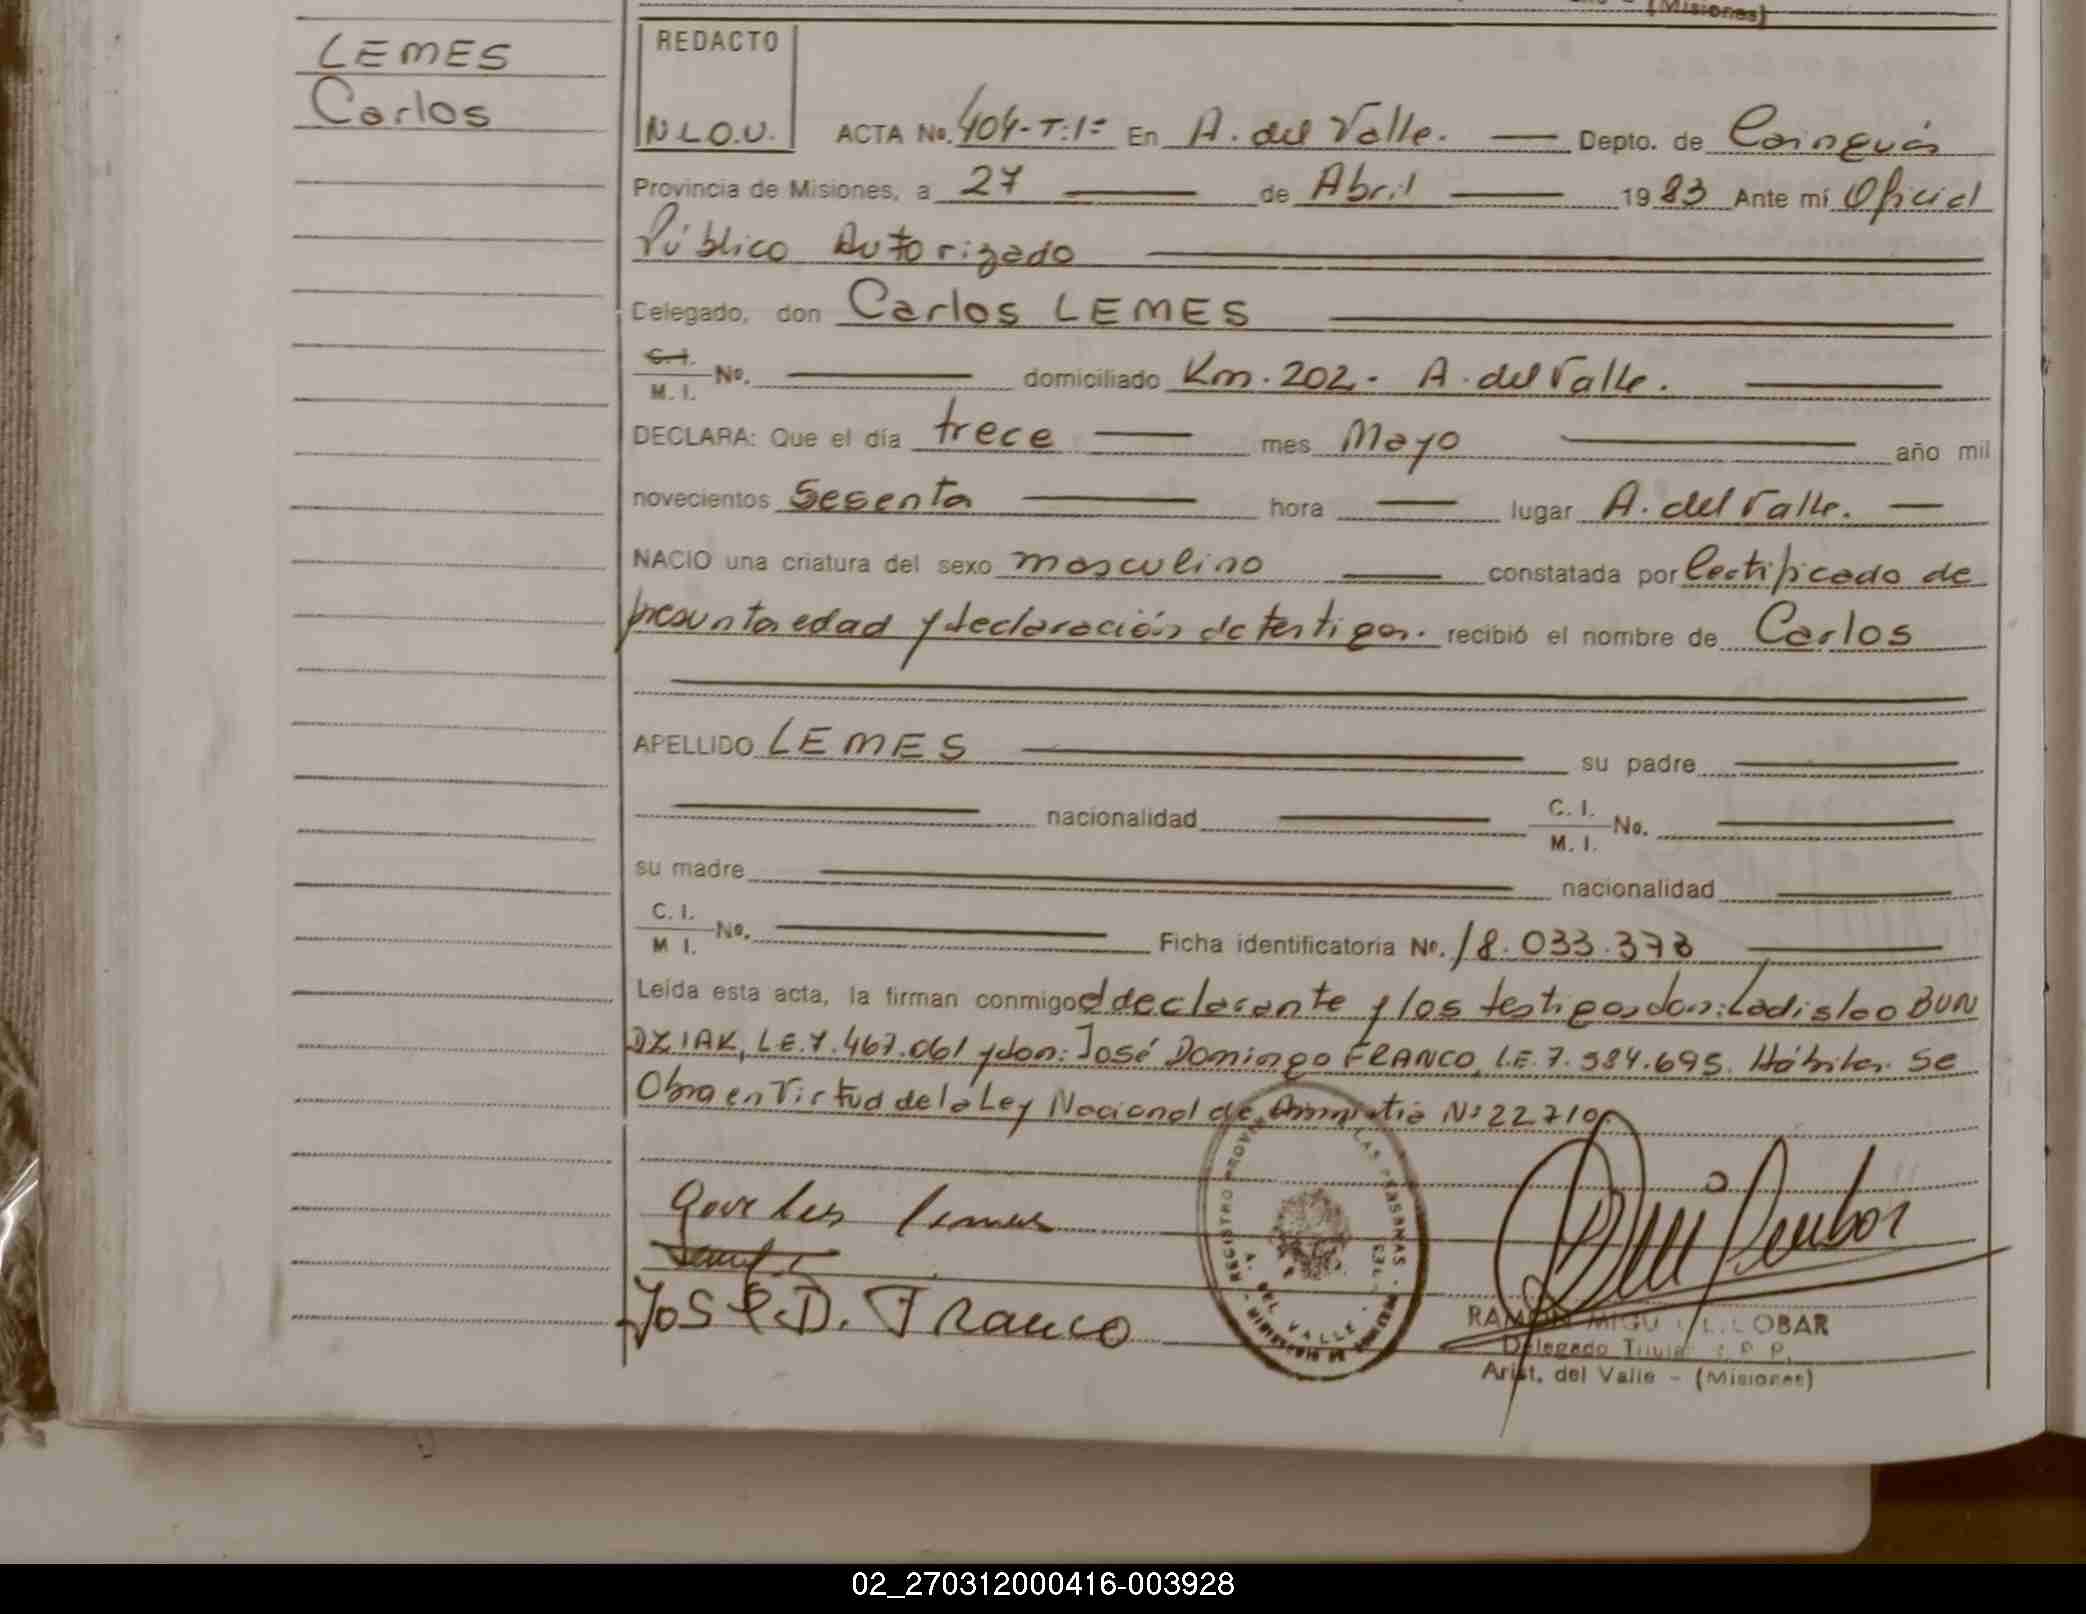 (Misiones)
LEMES
Carlos
REDACTO
N.L.O.U.
ACTA No. 404-T:1º En A. del Valle. Depto. de Cainguás
Provincia de Misiones, a 27 de Abril 1983 Ante mí Oficial
Público Autorizado
Delegado, don Carlos LEMES
C. I.
M. I. No. domiciliado Km. 202- A. del Valle.
DECLARA: Que el día trece mes Mayo año mil
novecientos Sesenta hora lugar A. del Valle.
NACIO una criatura del sexo masculino constatada por Certificado de
presunta edad y declaración de testigos. recibió el nombre de Carlos
APELLIDO LEMES su padre
nacionalidad C. I. No.
M. I.
su madre nacionalidad
C. I.
M I. No. Ficha identificatoria No. 18.033.378
Leída esta acta, la firman conmigo el declarante y los testigos don: Ladislao BUN
DZIAK, L.E.7.467.061 y don: José Domingo FRANCO, L.E. 7.584.695. Hábiles. Se
Obra en Virtud de la Ley Nacional de Amnistia Nº 22710.
Lemes
José D. Franco
REGISTRO PROVINCIAL DE LAS PERSONAS
A. DEL VALLE
RAMON MIGUEL LLOBAR
Delegado Titular R. P. P.
Arist. del Valle - (Misiones)
02_270312000416-003928